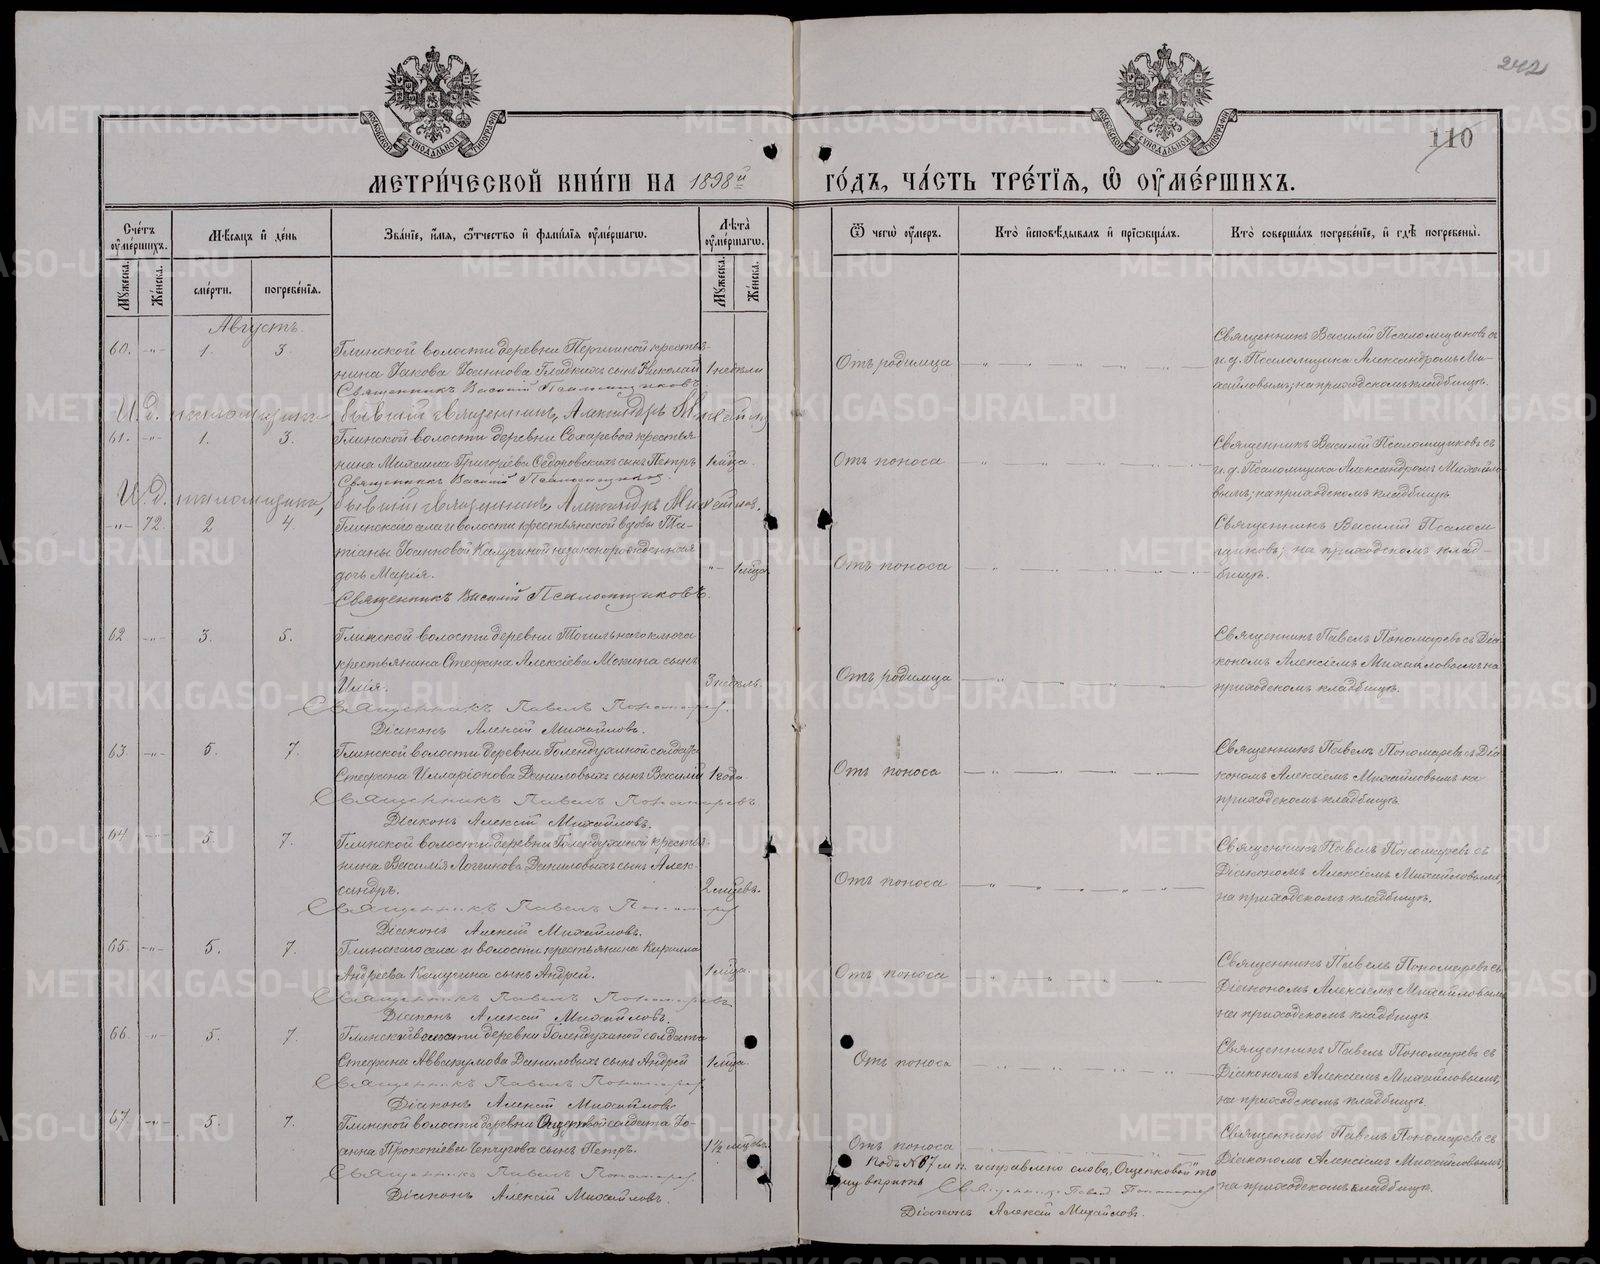 242
110
МОСКОВСКОЙ СѴНОДАЛЬНОЙ ТИПОГРАФІИ
МОСКОВСКОЙ СѴНОДАЛЬНОЙ ТИПОГРАФІИ
МЕТРИ́ЧЕСКОЙ КНИ́ГИ НА 1898й ГО́ДЪ, ЧА́СТЬ ТРЕ́ТІѦ, Ѡ ОУМЕ́РШИХЪ.
Сче́тъ оумершихъ.
Мꙋжеска.
Же́нска.
Мѣ́сяцъ и день
сме́рти.
погребе́нїѧ.
Зва́нїе, и́мѧ, ѻтчество и фами́лїѧ оумершагѡ.
Лѣта̀ оумершагѡ.
Мꙋжеска.
Же́нска.
Ѿ чегѡ̀ оумеръ.
Кто̀ исповѣ́дывалъ и прїѡбща́лъ.
Кто̀ соверша́лъ погребе́нїе, и гдѣ̀ погребены̀.
Августъ.
60. -"- 1. 3.
Глинской волости деревни Першиной крестья-
нина Іакова Іоаннова Гладкихъ сынъ Николай
1 недѣли
Священникъ Василій Псаломщиковъ
И. д. псаломщика бывшій священникъ, Александръ Михайловъ
Отъ родимца
Священникъ Василій Псаломщиковъ съ
и.д. Псаломщика Александромъ Ми-
хайловымъ; на приходскомъ кладбищѣ.
61. -"- 1. 3.
Глинской волости деревни Сохаревой крестья-
нина Михаила Григорьева Ѳедоровскихъ сынъ Петръ
1 мѣца.
Священникъ Василій Псаломщиковъ
И. д. псаломщика, бывшій священникъ, Александръ Михайловъ.
Отъ поноса
Священникъ Василій Псаломщиковъ съ
и.д. Псаломщика Александромъ Михайло-
вымъ; на приходскомъ кладбищѣ.
-"- 72. 2 4.
Глинскаго села и волости крестьянской вдовы Та-
тіаны Іоанновой Калугиной незаконорожденная
дочь Марія.
1 мѣца.
Священникъ Василій Псаломщиковъ.
Отъ поноса
Священникъ Василій Псалом-
щиковъ; на приходскомъ клад-
бищѣ.
62 -"- 3. 5.
Глинской волости деревни Точильнаго ключа
крестьянина Стефана Алексіева Мокина сынъ
Илія.
3 недѣль.
Священникъ Павелъ Пономаревъ.
Діаконъ Алексій Михайловъ.
Отъ родимца
Священникъ Павелъ Пономаревъ съ Діа-
кономъ Алексіемъ Михайловымъ на
приходскомъ кладбищѣ.
63. -"- 5. 7.
Глинской волости деревни Голендухиной солдата
Стефана Илларіонова Даниловыхъ сынъ Василій
1 года
Священникъ Павелъ Пономаревъ
Діаконъ Алексій Михайловъ.
Отъ поноса
Священникъ Павелъ Пономаревъ съ Діа-
кономъ Алексіемъ Михайловымъ на
приходскомъ кладбищѣ.
64. -"- 5. 7.
Глинской волости деревни Голендухиной крестья-
нина Василія Логинова Даниловыхъ сынъ Алек-
сандръ.
2 мѣцевъ.
Священникъ Павелъ Пономаревъ
Діаконъ Алексій Михайловъ.
Отъ поноса
Священникъ Павелъ Пономаревъ съ
Діакономъ Алексіемъ Михайловымъ;
на приходскомъ кладбищѣ.
65. -"- 5. 7.
Глинскаго села и волости крестьянина Кирилла
Андреева Калугина сынъ Андрей.
1 мѣца.
Священникъ Павелъ Пономаревъ
Діаконъ Алексій Михайловъ.
Отъ поноса
Священникъ Павелъ Пономаревъ съ
Діакономъ Алексіемъ Михайловымъ
на приходскомъ кладбищѣ
66. -"- 5. 7.
Глинской волости деревни Голендухиной солдата
Стефана Аввакумова Даниловыхъ сынъ Андрей
1 мѣца.
Священникъ Павелъ Пономаревъ
Діаконъ Алексій Михайловъ
Отъ поноса
Священникъ Павелъ Пономаревъ съ
Діакономъ Алексіемъ Михайловымъ;
на приходскомъ кладбищѣ.
67. -"- 5. 7.
Глинской волости деревни Ощепковой солдата Іо-
анна Прокопіева Чепчугова сынъ Петръ.
1½ мѣцевъ.
Священникъ Павелъ Пономаревъ.
Діаконъ Алексій Михайловъ.
Отъ поноса
Священникъ Павелъ Пономаревъ съ
Діакономъ Алексіемъ Михайловымъ;
на приходскомъ кладбищѣ.
Подъ № 67 м.п. исправлено слово „Ощепковой" то-
му вѣрить
Священникъ Павелъ Пономаревъ
Діаконъ Алексій Михайловъ.
METRIKI.GASO-URAL.RU